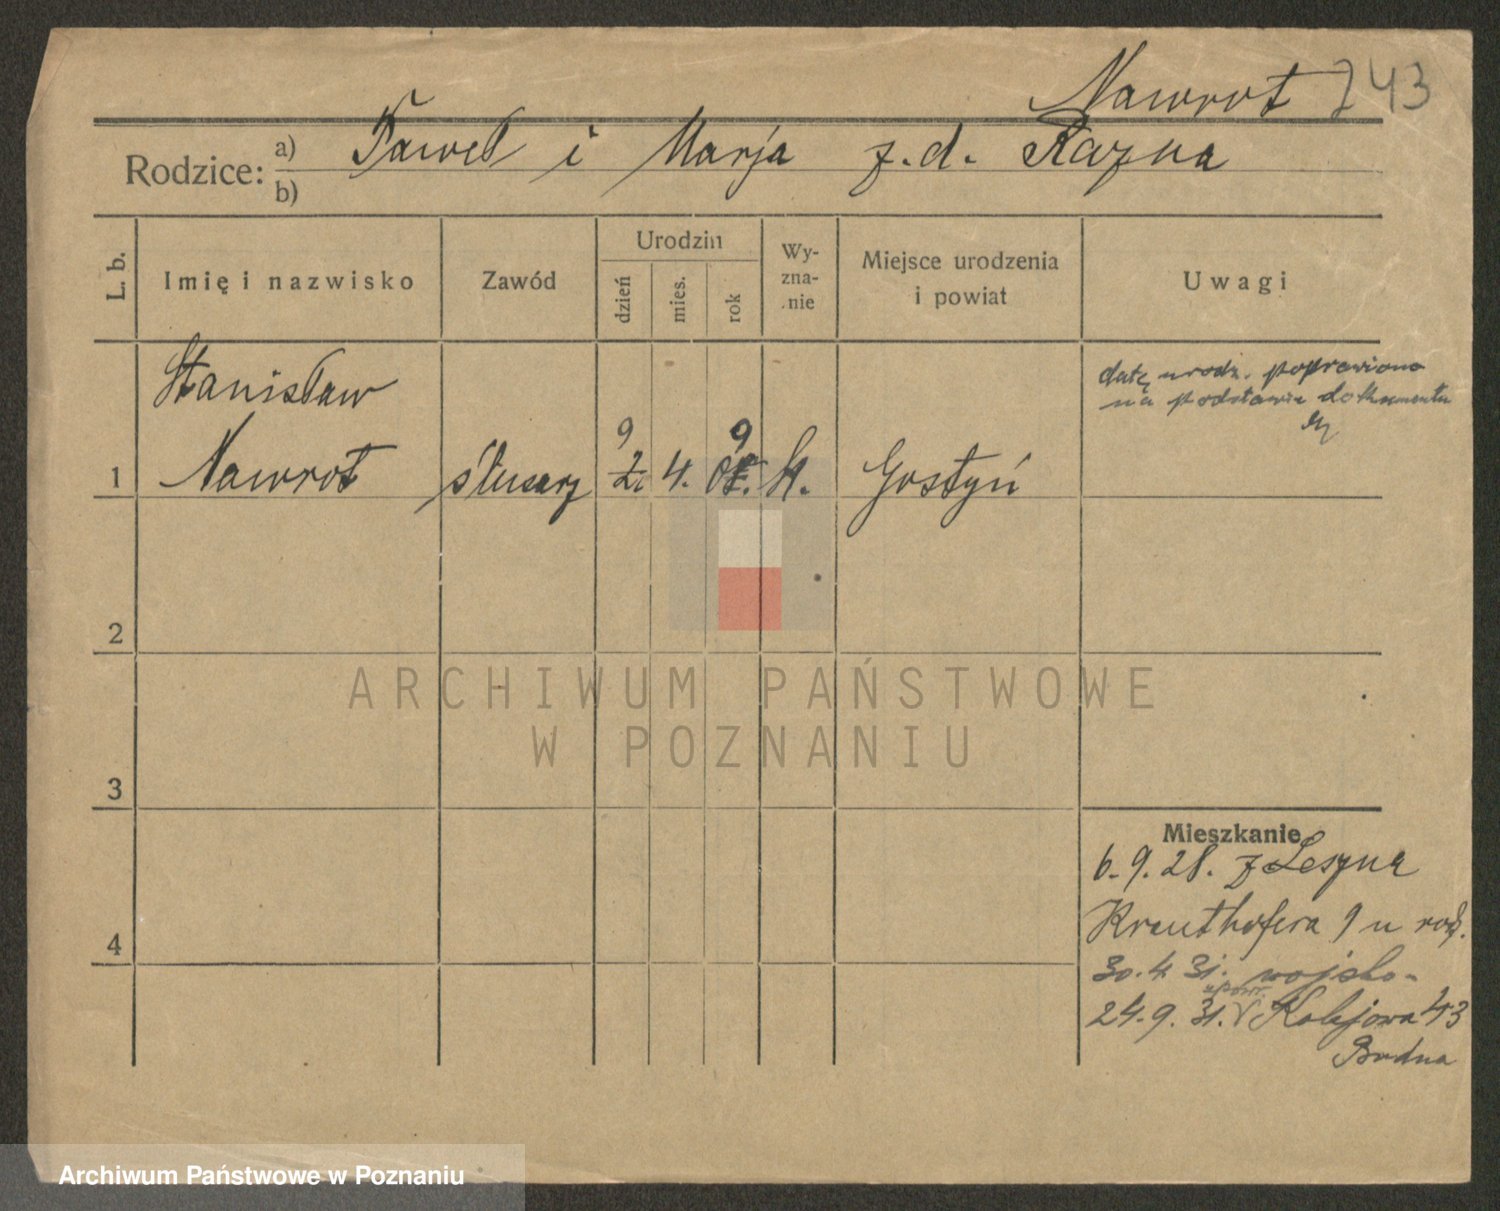 Nawrot 743
Rodzice: a) Paweł i Marja z.d. Kazna
b)
L. b.
Imię i nazwisko
Zawód
Urodzin
dzień
mies.
rok
Wy-
zna-
nie
Miejsce urodzenia
i powiat
Uwagi
Stanisław
Nawrot
1
ślusarz
9
4.
9
k.
Gostyń
datę urodz. poprawiono
na podstawie dokumentu
2
3
4
Mieszkanie
6.9.28. z Leszna
Krauthofera 9 u rodz.
30.4.31. wojsko-
24.9.31. Kolejowa 43
Budna
ARCHIWUM PAŃSTWOWE
W POZNANIU
Archiwum Państwowe w Poznaniu